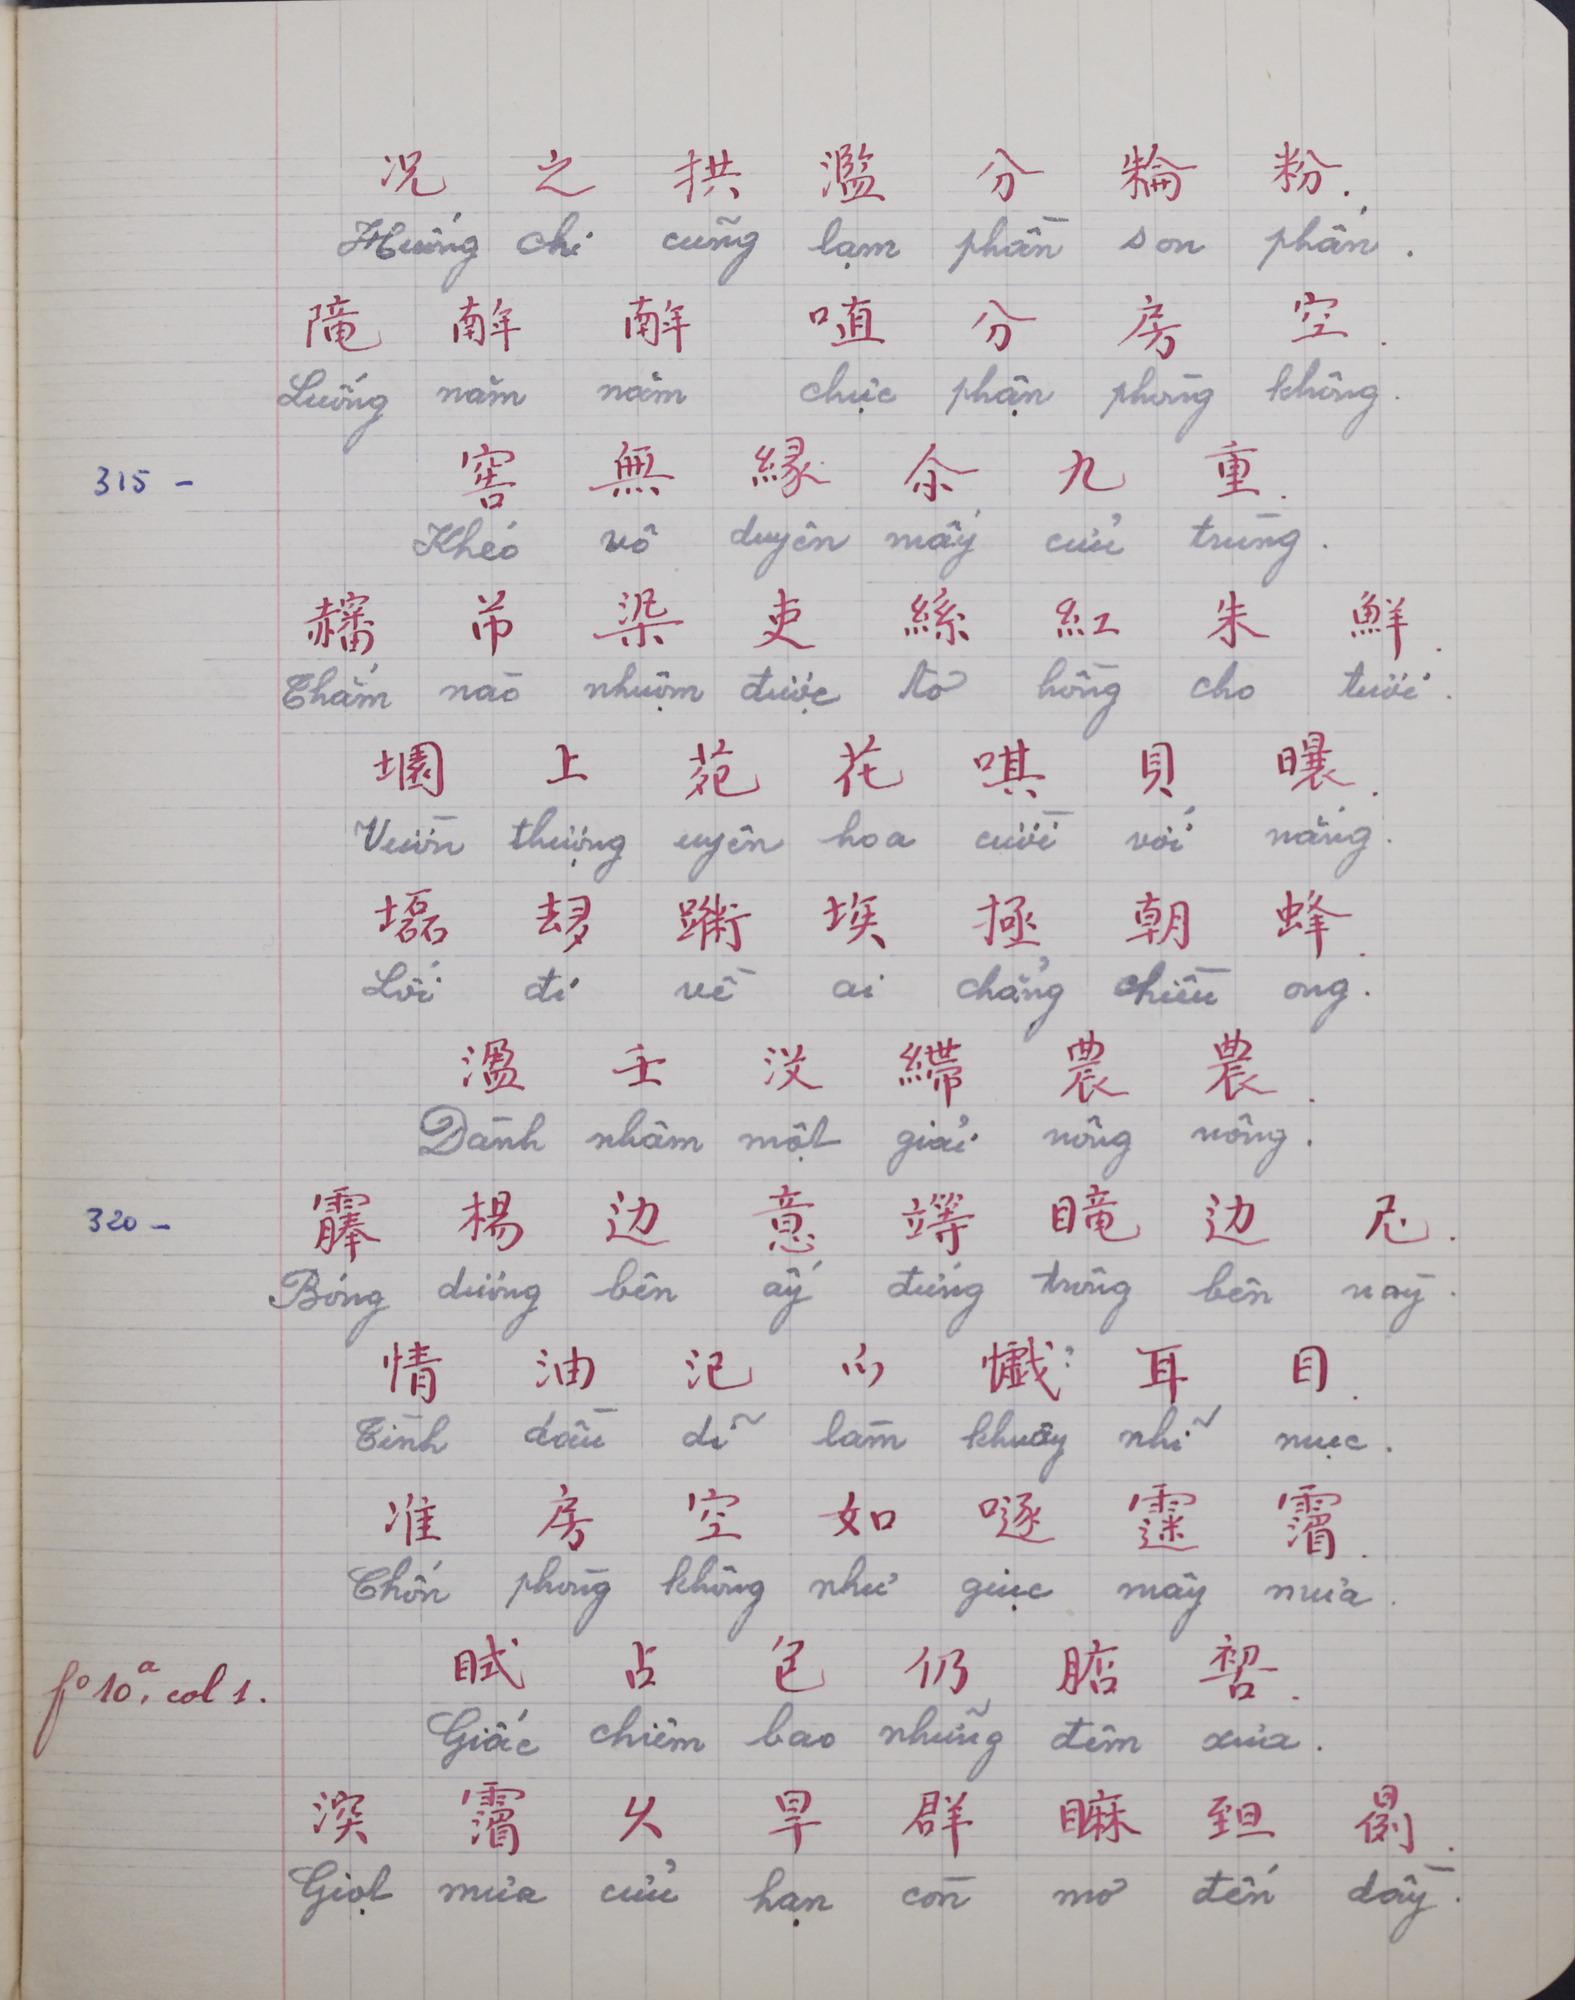 况 之 拱 濫 分 𥽌 粉.
Huống chi cũng lạm phần son phấn.
隴 𢆥 𢆥 㗂 分 房 空.
Luống năm năm chực phận phòng không.
315 - 窖 無 緣 尒 九 重.
Khéo vô duyên mấy cửu trùng.
𧹰 芇 染 吏 絲 紅 朱 鮮.
Thắm nào nhuộm được tơ hồng cho tươi.
園 上 苑 花 唭 貝 㬢.
Vườn thượng uyển hoa cười với nắng.
磊 𠫾 衛 埃 拯 朝 蜂.
Lối đi về ai chẳng chiều ong.
濕 壬 沒 繲 農 農.
Dành nhâm một giải nông nông.
320 - 䏾 楊 边 意 等 曨 边 尼.
Bóng dương bên ấy đứng trông bên nay.
情 油 汜 耳 目.
Tình dầu dĩ lầm khuây nhĩ mục.
准 房 空 如 𠽖 䨍 𩅹.
Chốn phòng không như giục mây mưa.
f° 10ᵃ, col 1. 占 包 仍 𣎀 𠸗.
Giấc chiêm bao những đêm xưa.
湥 𩅹 久 旱 群 𥊚 𦤾 𣈗.
Giọt mưa cửu hạn còn mơ đến dầy.